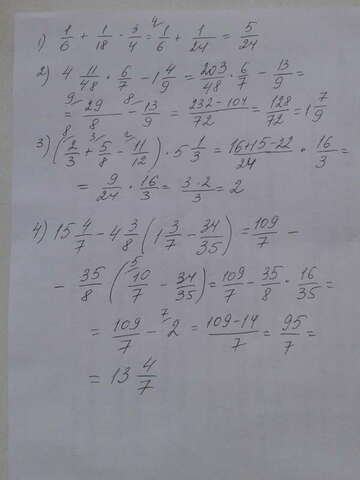 1) 1/6 + 1/18 · 3/4 = ⁴ 1/6 + 1/24 = 5/24
2) 4 11/48 · 6/7 - 1 4/9 = 203/48 · 6/7 - 13/9 =
= ⁹ 29/8 - ⁸ 13/9 = (232-104)/72 = 128/72 = 1 7/9
3) (⁸ 2/3 + ³ 5/8 - ² 11/12) · 5 1/3 = (16+15-22)/24 · 16/3 =
= 9/24 · 16/3 = (3·2)/3 = 2
4) 15 4/7 - 4 3/8 (1 3/7 - 34/35) = 109/7 -
- 35/8 (⁵ 10/7 - 34/35) = 109/7 - 35/8 · 16/35 =
= 109/7 - ⁷ 2 = (109-14)/7 = 95/7 =
= 13 4/7